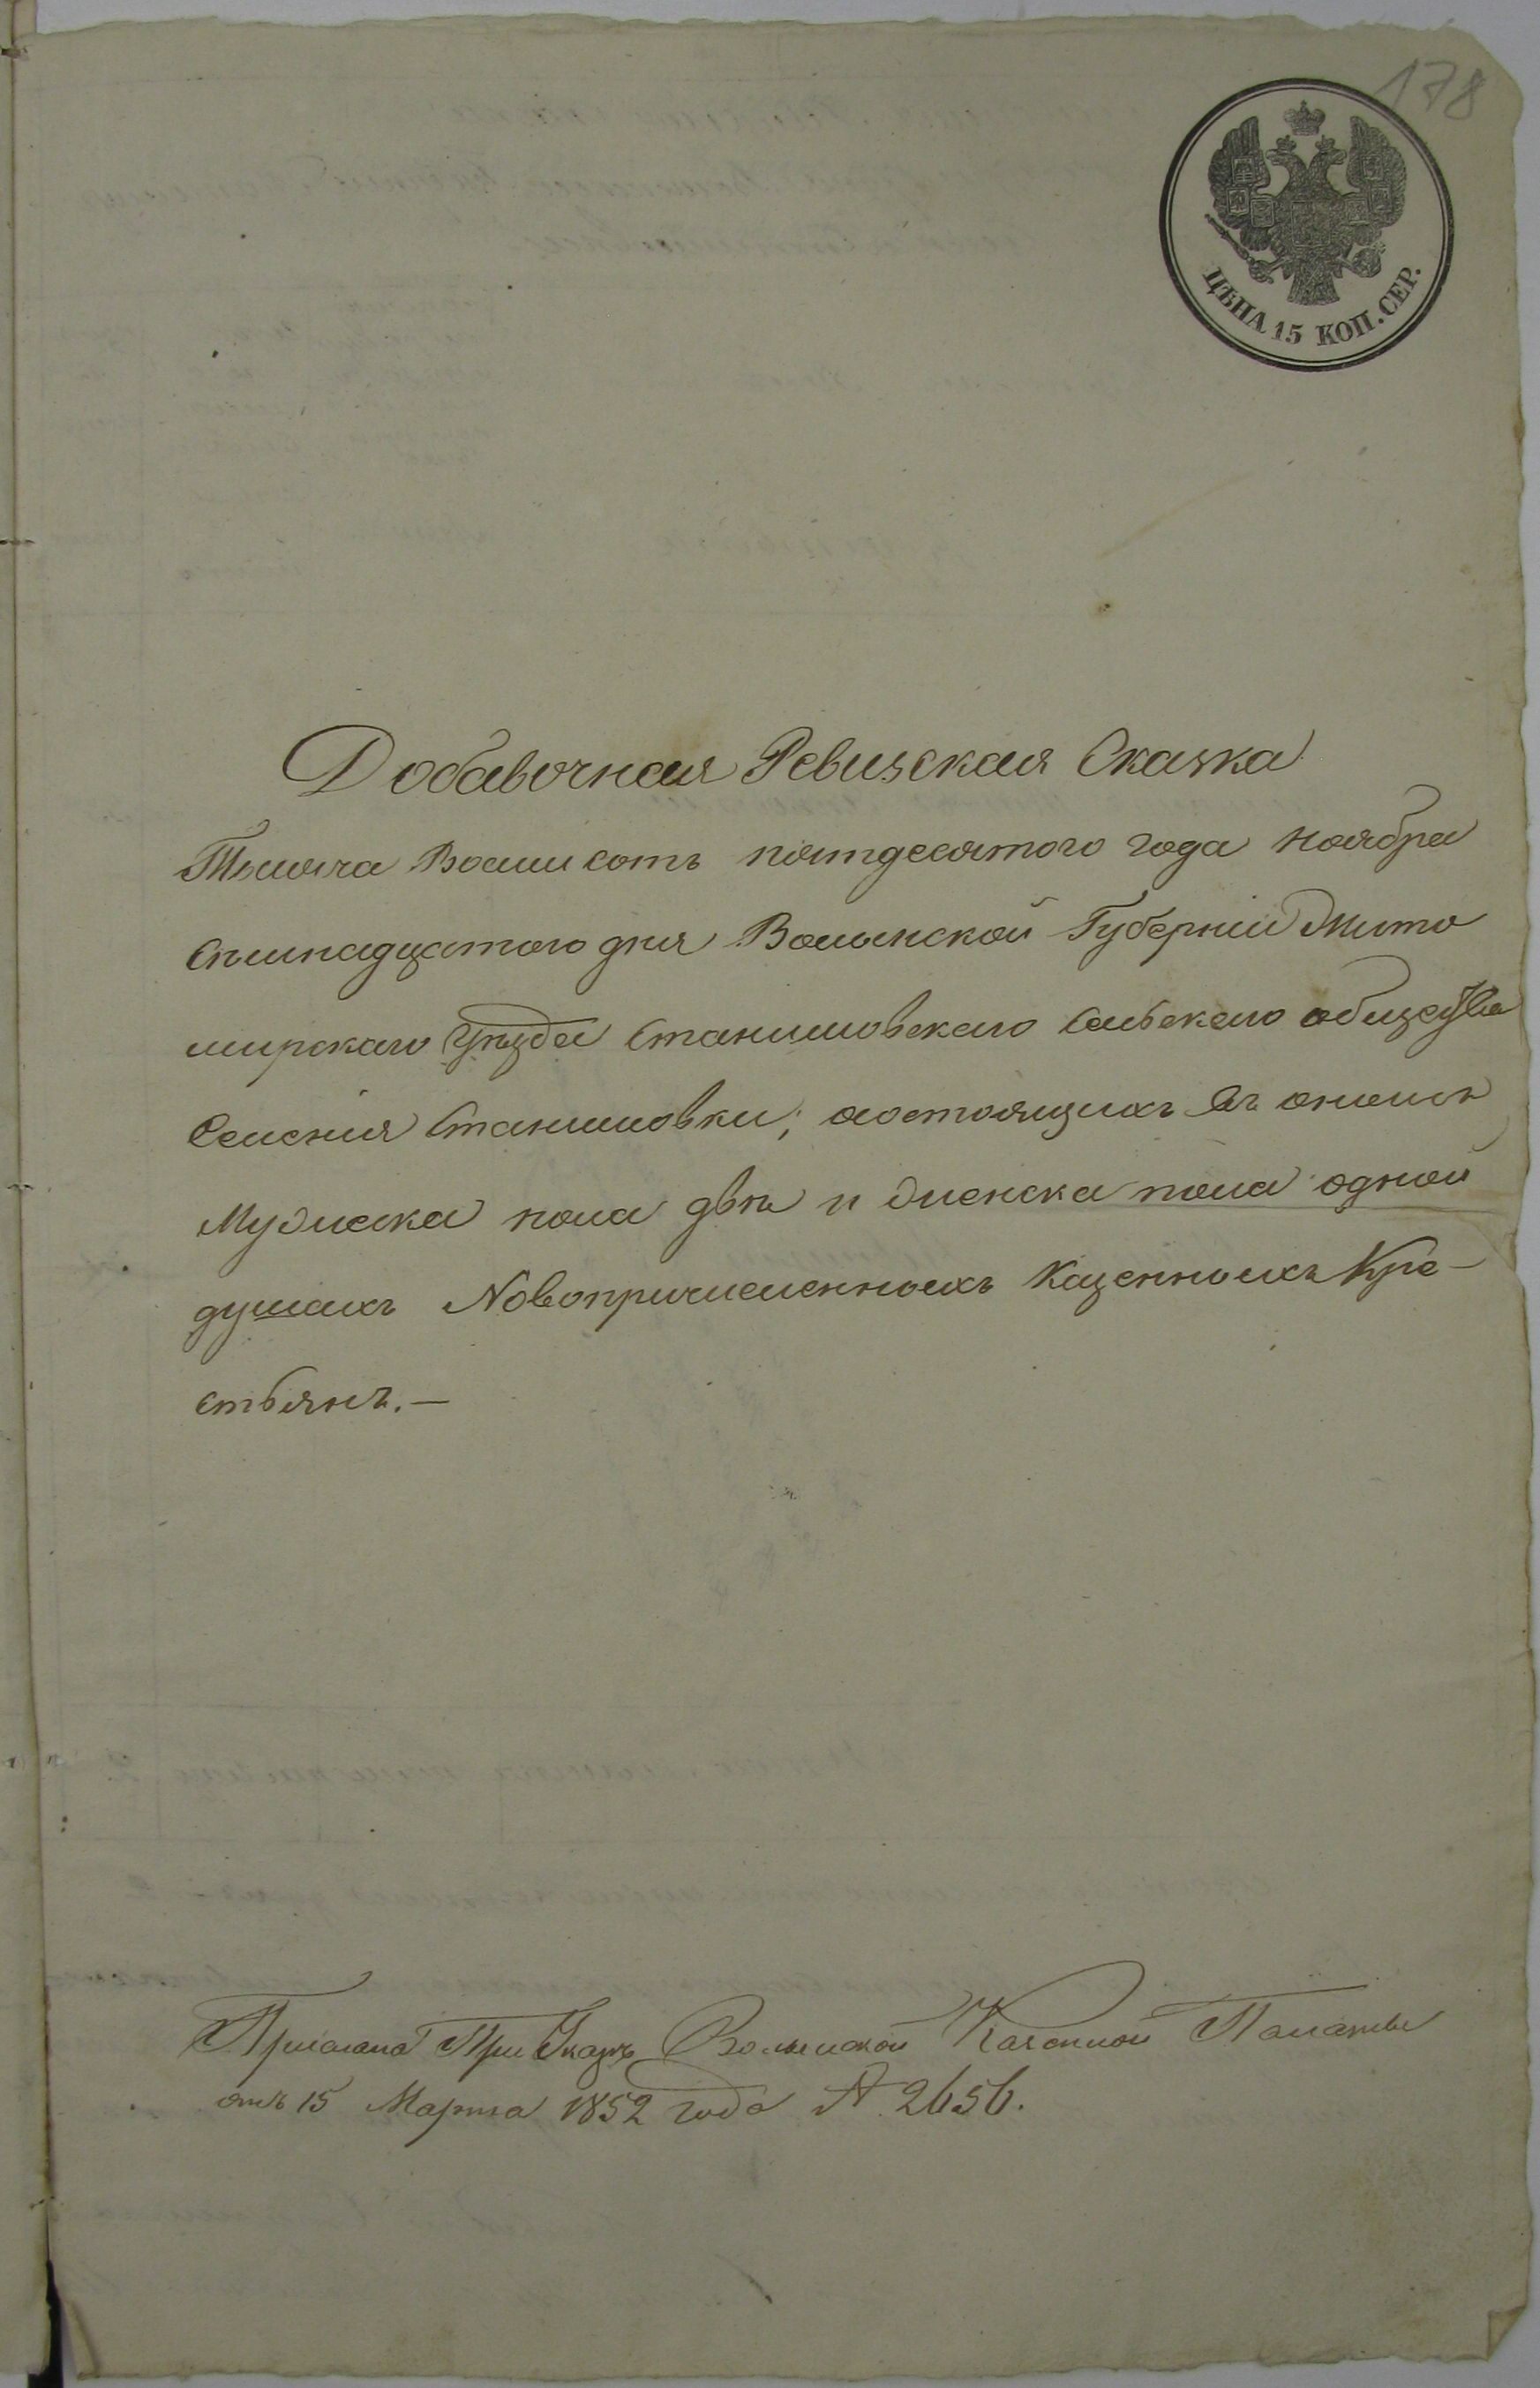 178
ЦѢНА 15 КОП. СЕР.
Добавочная Ревизская Сказка
Тысяча Восмисотъ пятдесятого года ноября
семнадцатого дня Волынской Губерніи Жито
мирскаго Уѣзда Станишовскаго Сельскаго общества
Селенія Станишовки; состоящихъ въ ономъ
Мужеска пола двѣ и женска пола одной
душахъ Новопричисленныхъ Казенныхъ Кре-
стьянъ.—
Прислана При Указѣ Волынской Казенной Палаты
отъ 15 Марта 1852 года № 2656.